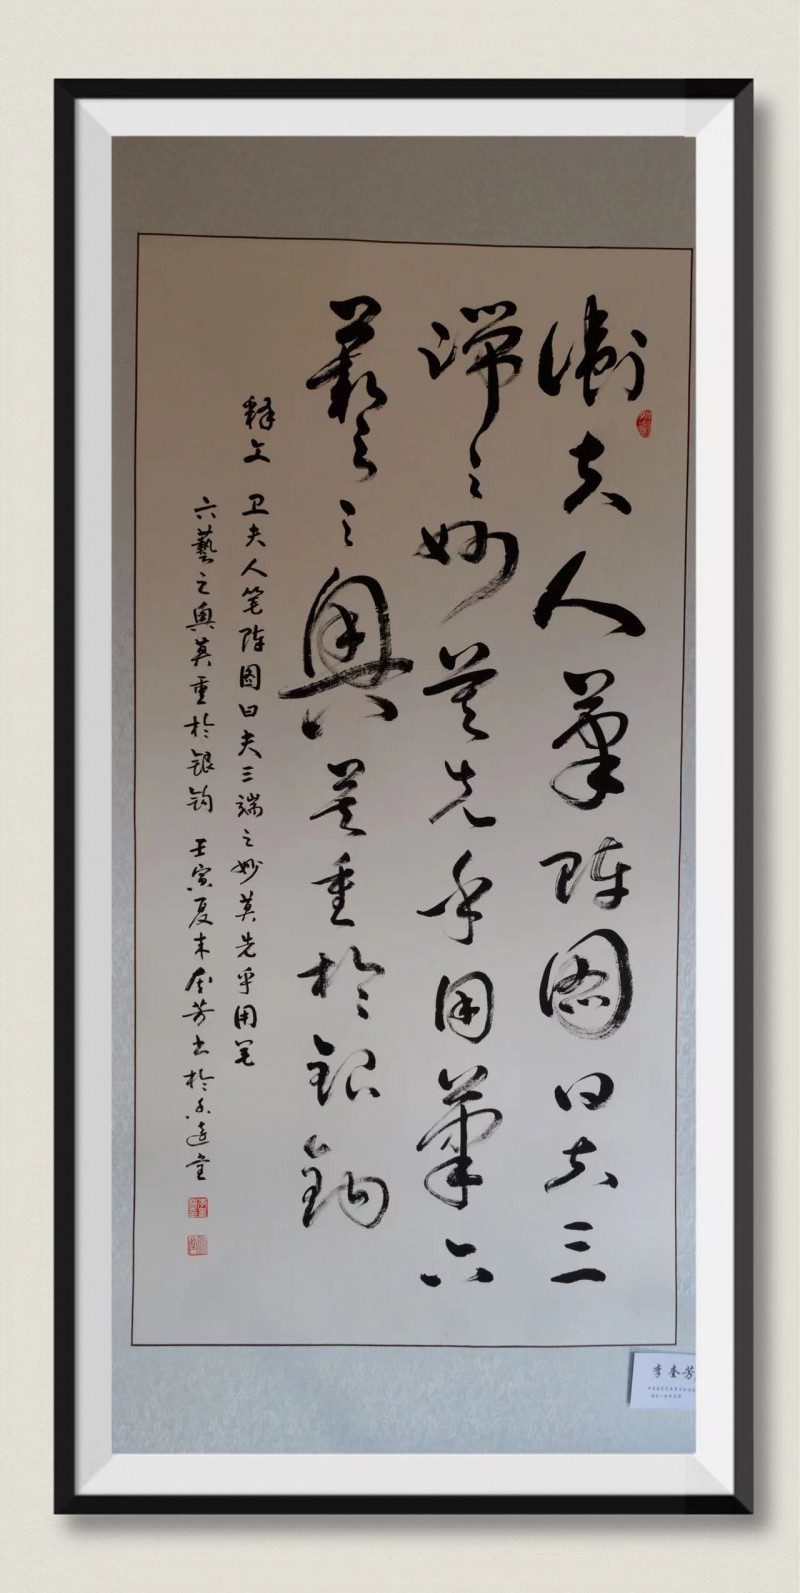 衛夫人筆陣圖曰夫三
端之妙莫先乎用筆六
藝之奥莫重於銀鉤
释文 卫夫人笔阵图曰夫三端之妙莫先乎用笔
六藝之奥莫重於银钩 壬寅夏末奎芳书於
李奎芳